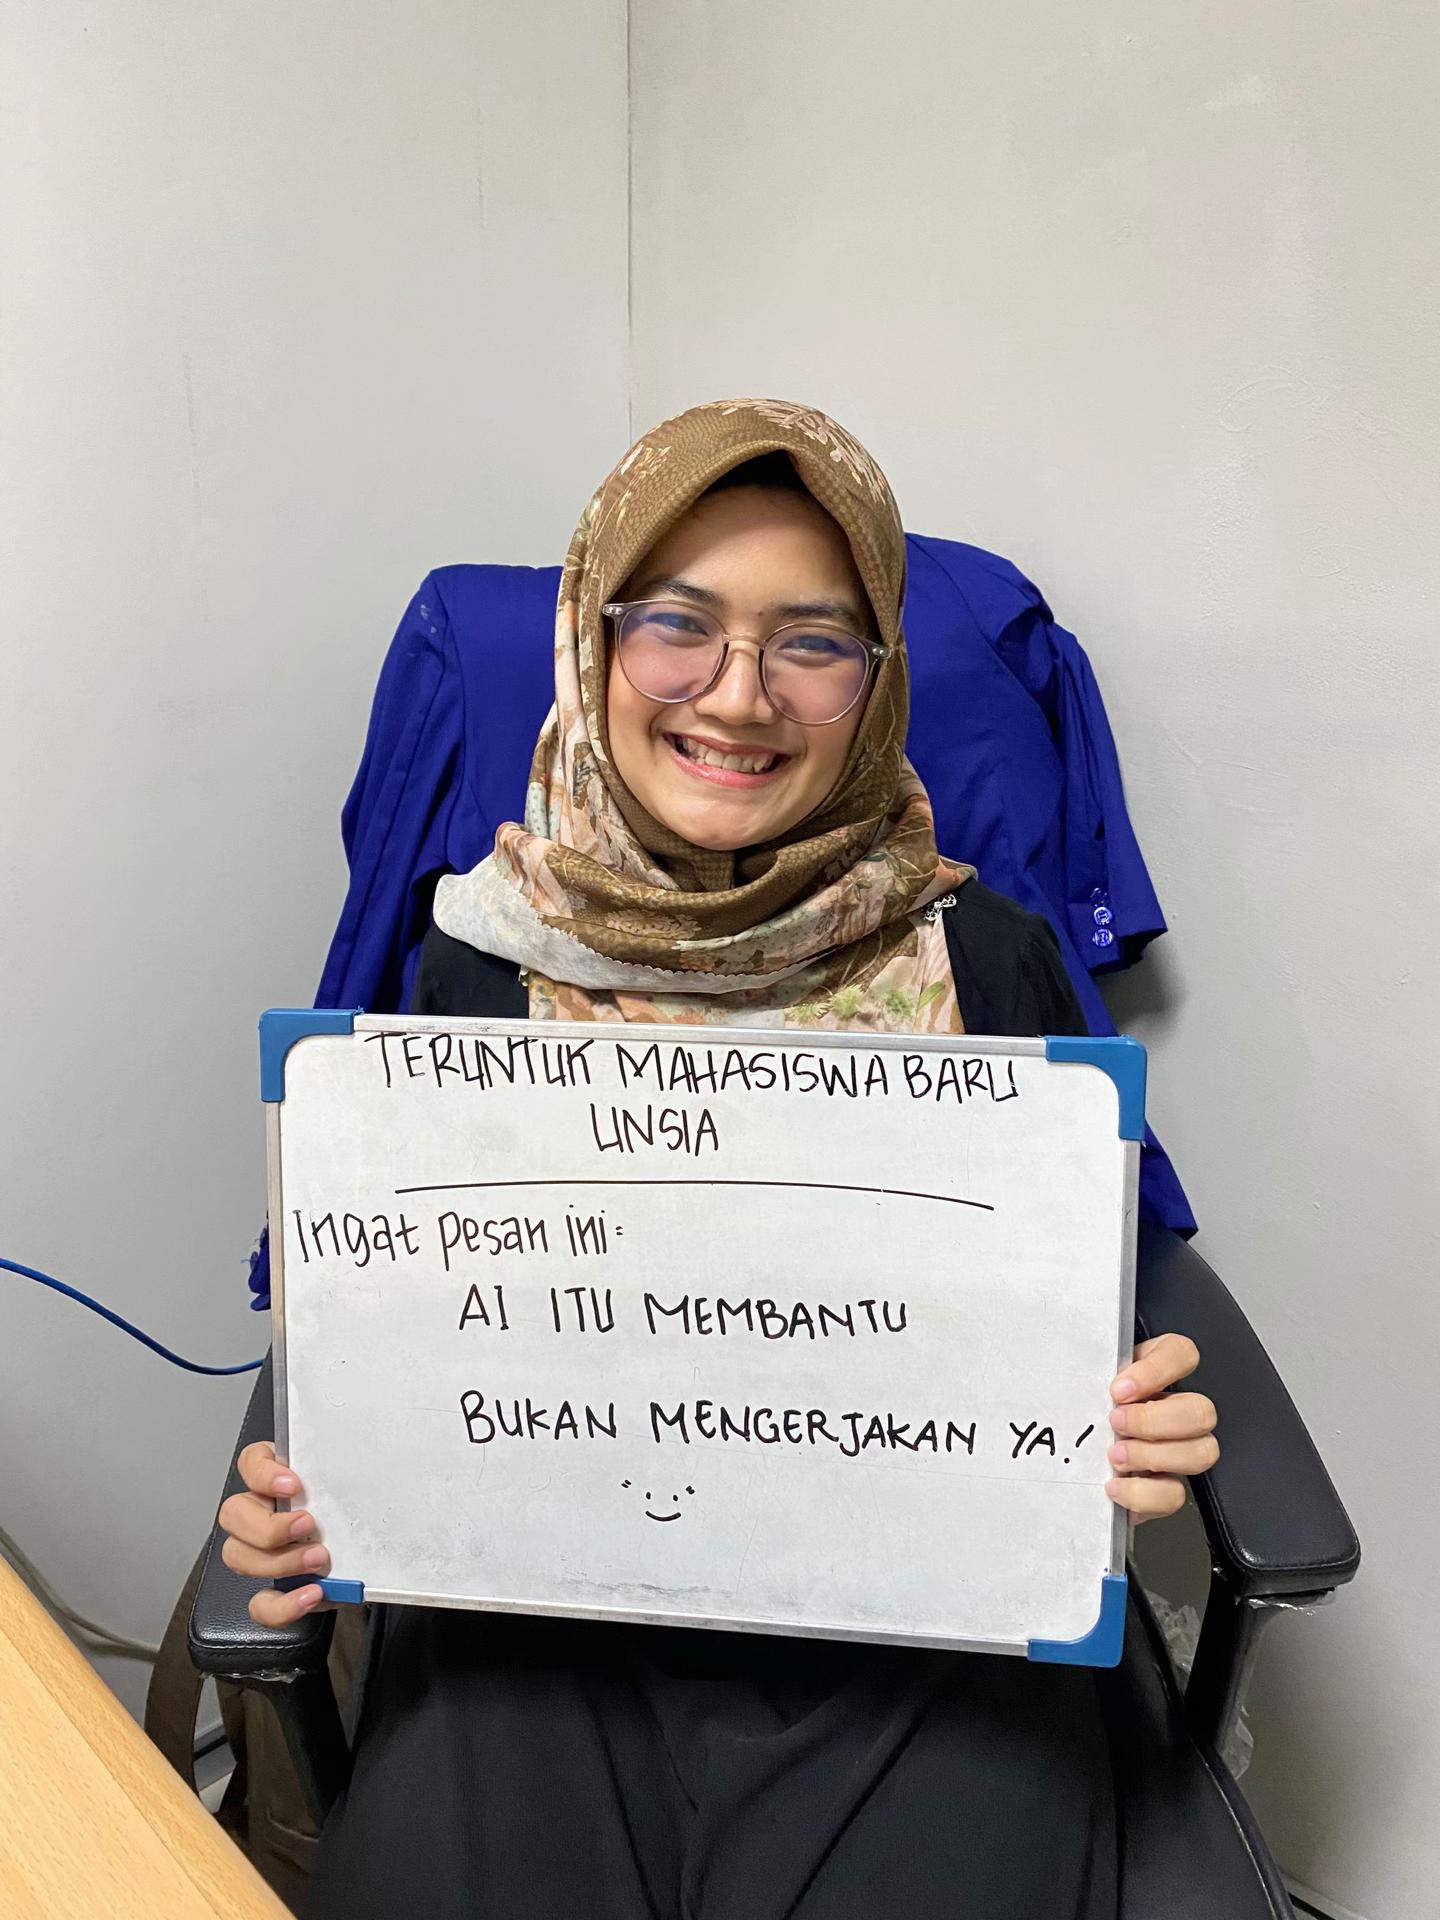 TERUNTUK MAHASISWA BARU
UNSIA
Ingat pesan ini:
AI ITU MEMBANTU
BUKAN MENGERJAKAN YA!